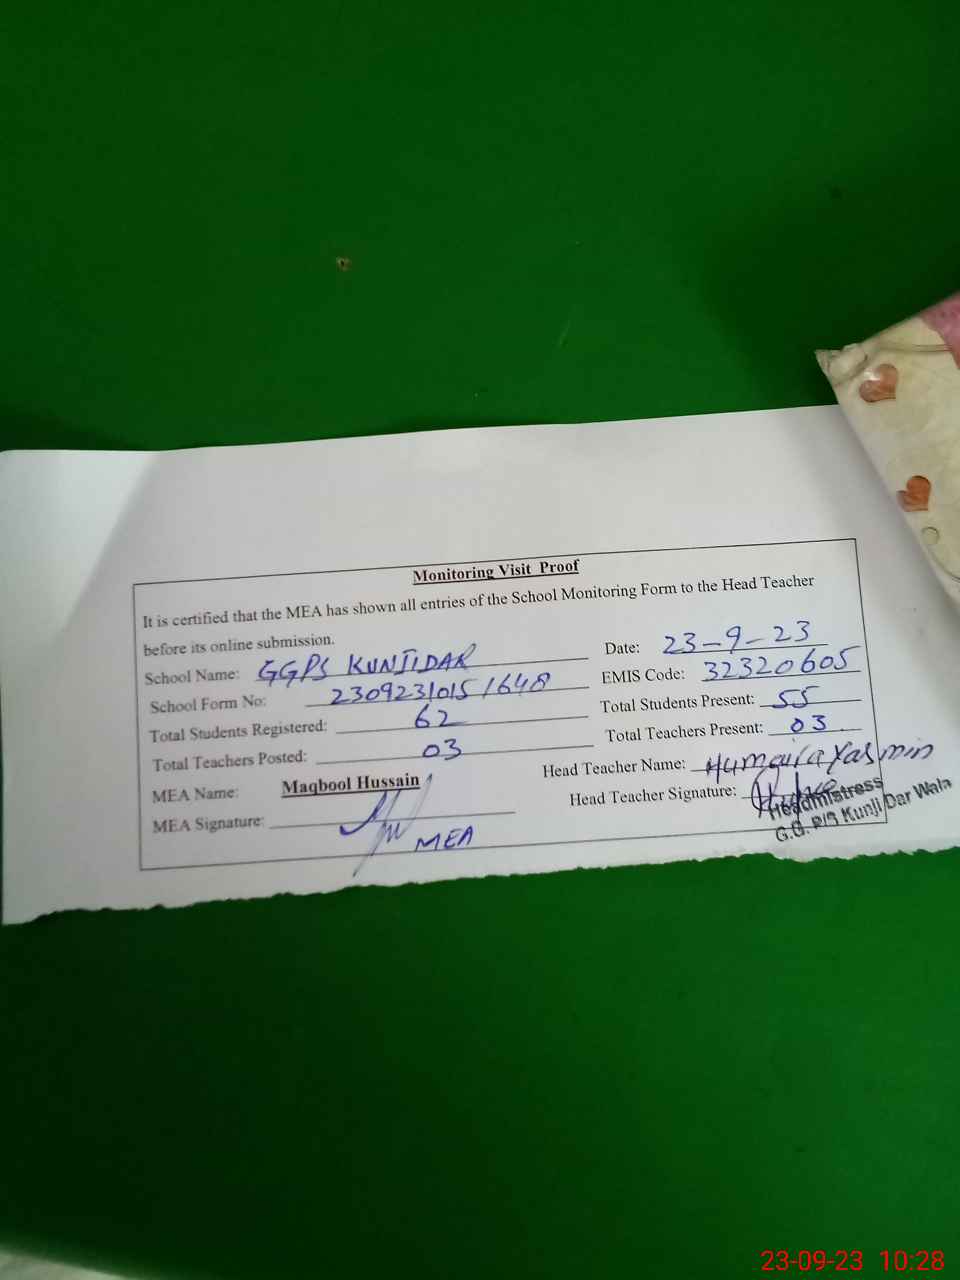 Monitoring Visit Proof
It is certified that the MEA has shown all entries of the School Monitoring Form to the Head Teacher
before its online submission.
School Name: GGPS KUNJIDAR Date: 23-9-23
School Form No: 23092310151648 EMIS Code: 32320605
Total Students Registered: 62 Total Students Present: 55
Total Teachers Posted: 03 Total Teachers Present: 03
MEA Name: Maqbool Hussain Head Teacher Name: Humaira Yasmin
MEA Signature: MEA Head Teacher Signature:
Headmistress
G.G. P/S Kunji Dar Wala
23-09-23 10:28